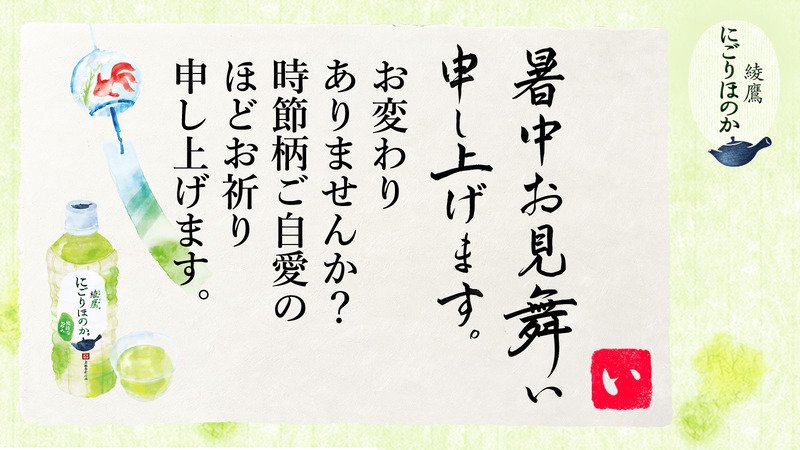 暑中お見舞い
申し上げます。
お変わり
ありませんか？
時節柄ご自愛の
ほどお祈り
申し上げます。
い
綾鷹
にごりほのか
綾鷹
にごりほのか